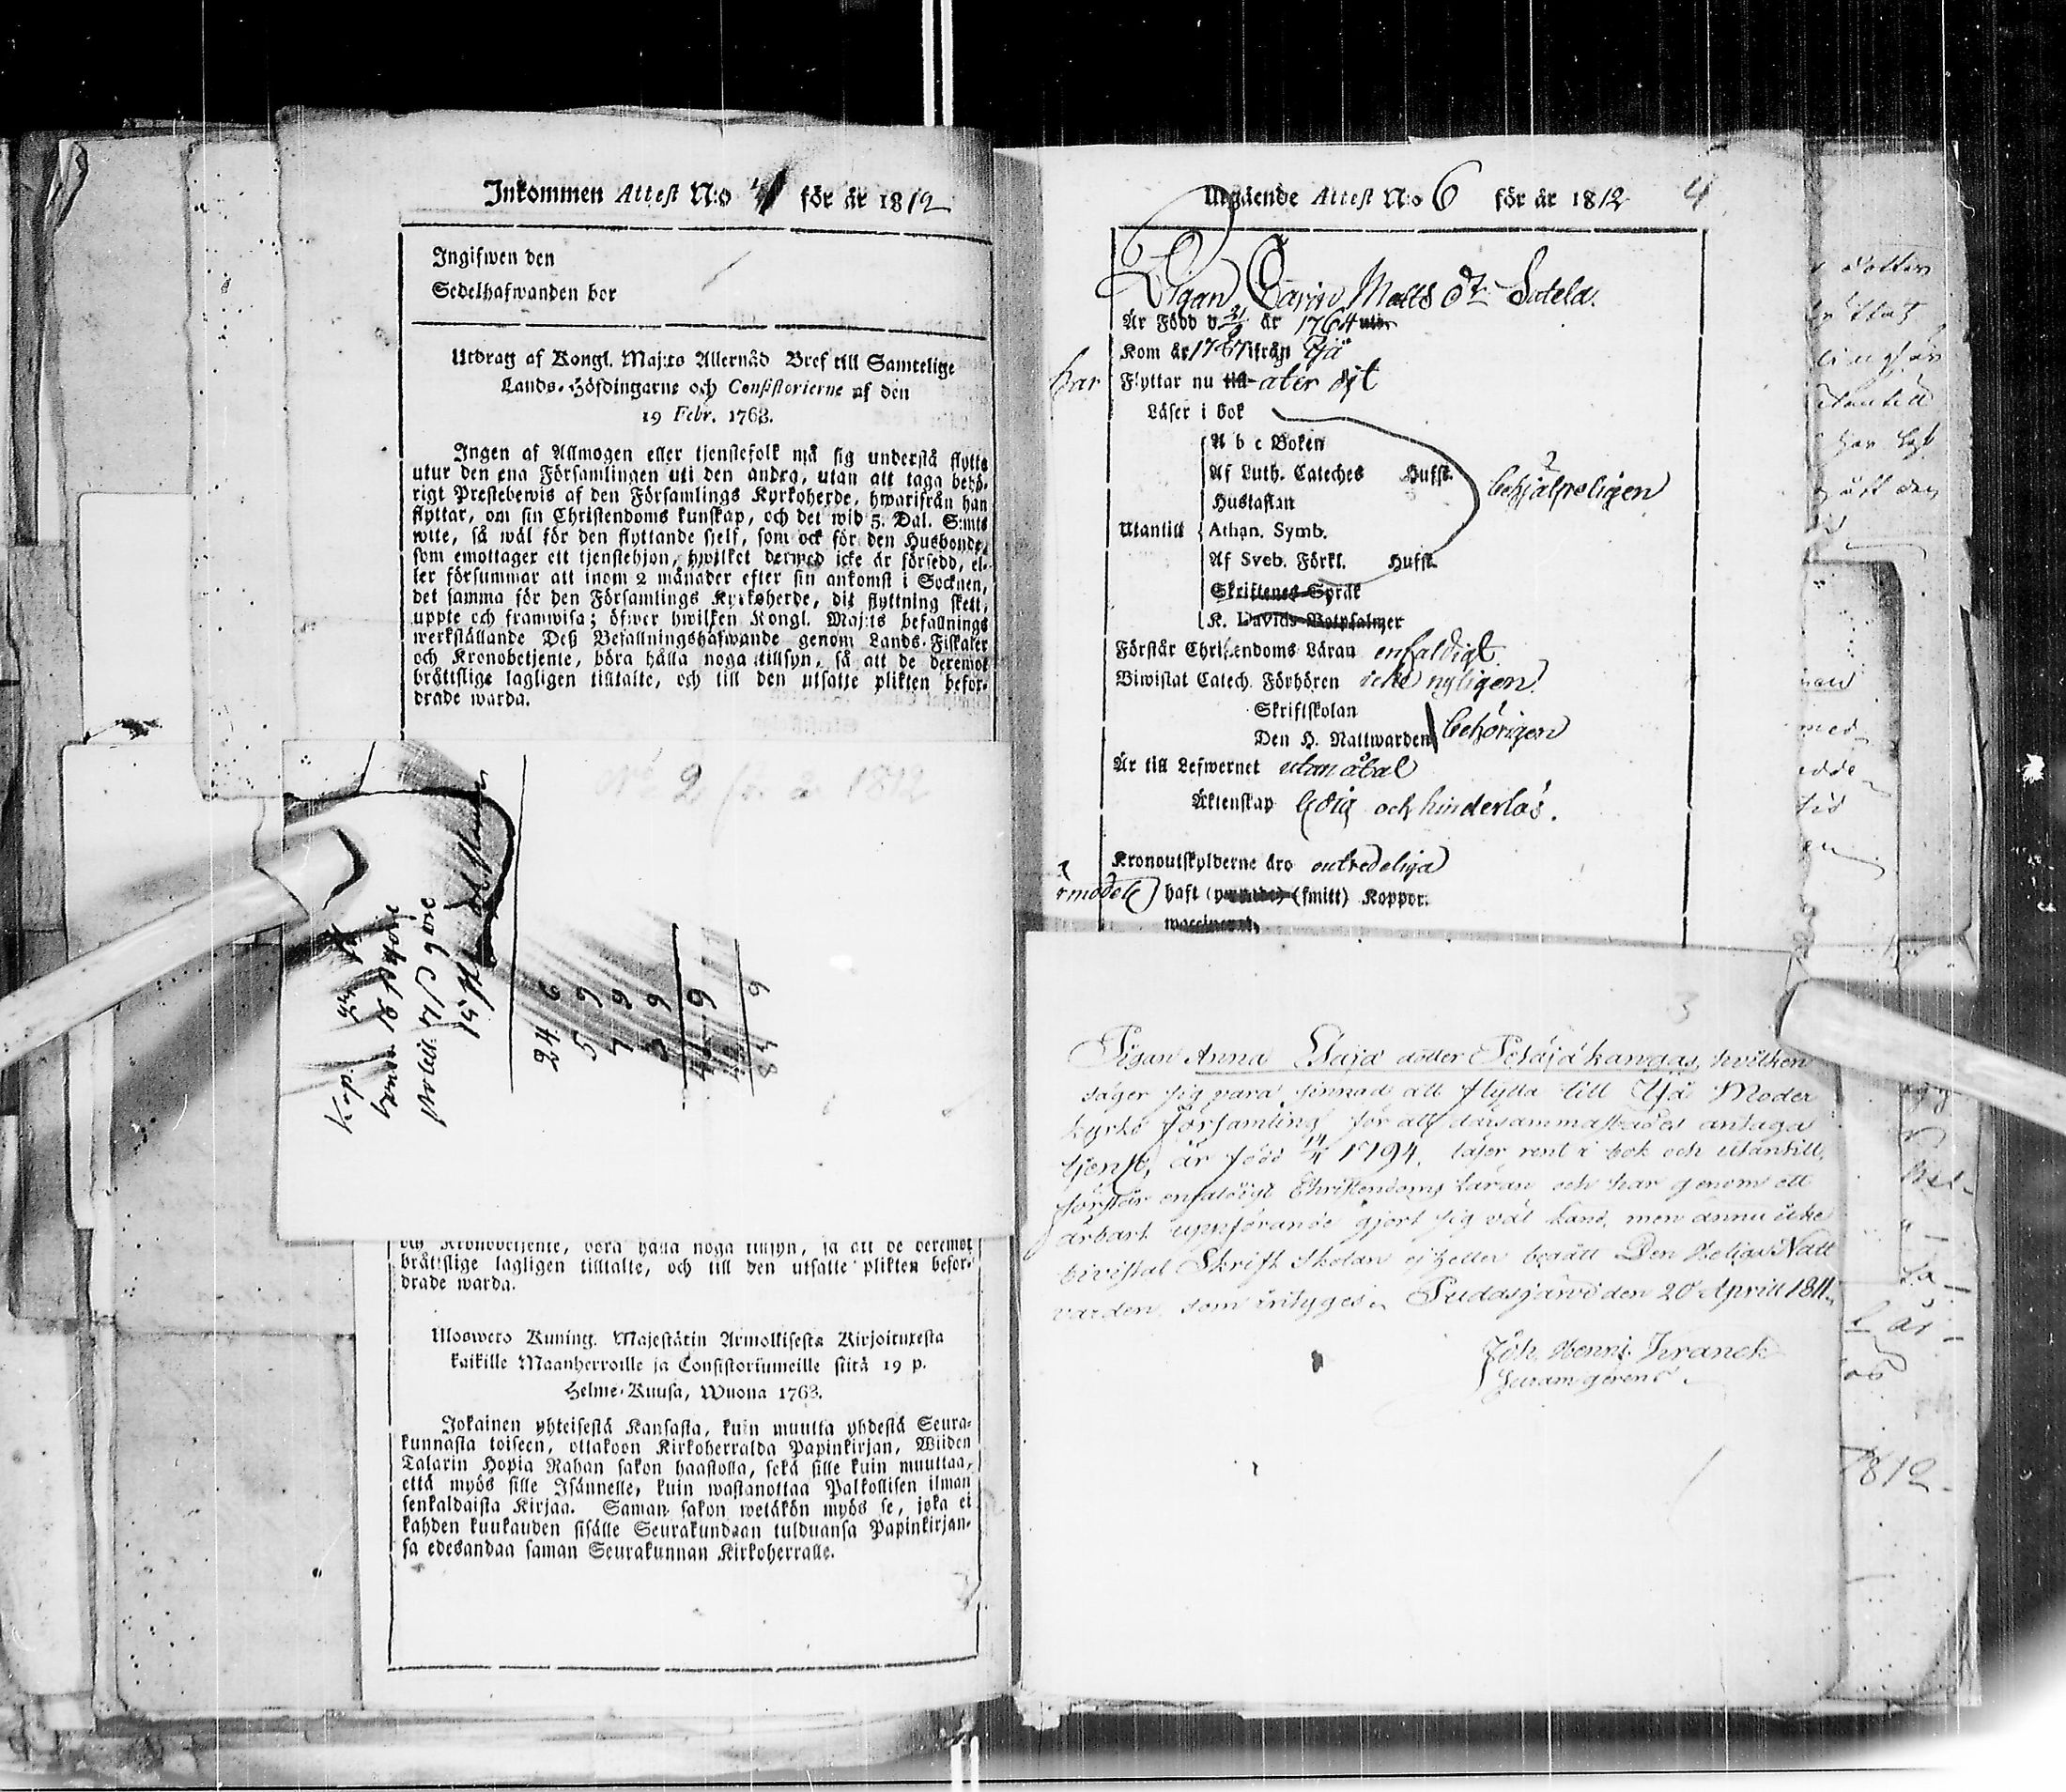 Inkommen Attest N:o 4 för år 1812
Ingifwen den
Sedelhafwanden bor
Utdrag af Kongl. Maj:ts Allernåd Bref till Samtelige
Lands-Höfdingarne och Consistorierne af den
19 Febr. 1763.
Ingen af Allmogen eller tjenstefolk må sig understå flytta
utur den ena Församlingen uti den andra, utan att taga behö-
rigt Prestebewis af den Församlings Kyrkoherde, hwarifrån han
flyttar, om sin Christendoms kunskap, och det wid 5. Dal. S:mts
wite, så wäl för den flyttande sielf, som ock för den Husbonde,
som emottager ett tjenstehjon, hwilket dermed icke är försedd, el-
ler försummar att inom 2 månader efter sin ankomst i Socknen,
det samma för den Församlings Kyrkoherde, dit flyttning skett,
uppte och framwisa; öfwer hwilken Kongl. Maj:ts befallnings
werkställande Deß Befallningshafwande genom Lands-Fiskaler
och Kronobetjente, böra hålla noga tillsyn, så att de deremot
bråttslige lagligen tilltalte, och till den utsatte plikten befor-
drade warda.
N:o 2 för år 1812
Kop.
24 6
5 9
9
9
och Kronobetjente, böra hålla noga tillsyn, så att de deremot
bråttslige lagligen tilltalte, och till den utsatte plikten befor-
drade warda.
Uloswero Kuning. Majestätin Armollisesta Kirjoituxesta
kaikille Maanherroille ja Consistoriumeille siitä 19 p.
Helme-Kuusa, Wuona 1763.
Jokainen yhteisestä Kansasta, kuin muutta yhdestä Seura-
kunnasta toiseen, ottakoon Kirkoherralda Papinkirjan, Wiiden
Talarin Hopia Rahan sakon haastolla, sekä sille kuin muuttaa,
että myös sille Isännelle, kuin wastanottaa Palkollisen ilman
senkaldaista Kirjaa. Saman sakon wetäkön myös se, joka ei
kahden kuukauden sisälle Seurakundaan tulduansa Papinkirjan-
sa edesandaa saman Seurakunnan Kirkoherralle.
Utgående Attest N:o 6 för år 1812 4
Pigan Carin Matts dr Sutela.
Är Född d 21/9 år 1764 uti
Kom år 1787 ifrån Ijå
har Flyttar nu till åter dit
Läser i bok
A b c Boken
Af Luth. Cateches Hufst.
Hustaflan
behjälpeligen
Utantill Athan. Symb.
Af Sveb. Förkl. Hufst.
Skriftenes Språk
K. Davids Botpsalmer
Förstår Christendoms Läran enfaldigt
Biwistat Catech. Förhören icke nyligen
Skriftskolan
Den H. Nattwarden behörigen
Är till Lefwernet utan åtal
Äktenskap ledig och hinderlös.
Kronoutskylderne äro outredeliga
haft (smitt) Koppor.
3
Pigan Anna Esaja dotter Petäjäkangas, hvilken
säger sig vara sinnad att flytta till Ijå Moder
kyrko Församling för att därsammastädes antaga
tjenst, är född 14/11 1794, läser rent i bok och utantill,
förstår enfaldigt Christendoms Läran och har genom ett
ärbart uppförande gjort sig väl känd, men ännu icke
bivistat Skrift Skolan ej heller begått Den Heliga Natt
varden, som intygas. Puddasjärvi den 20 April 1811.
Joh. Henric Franck
1812.